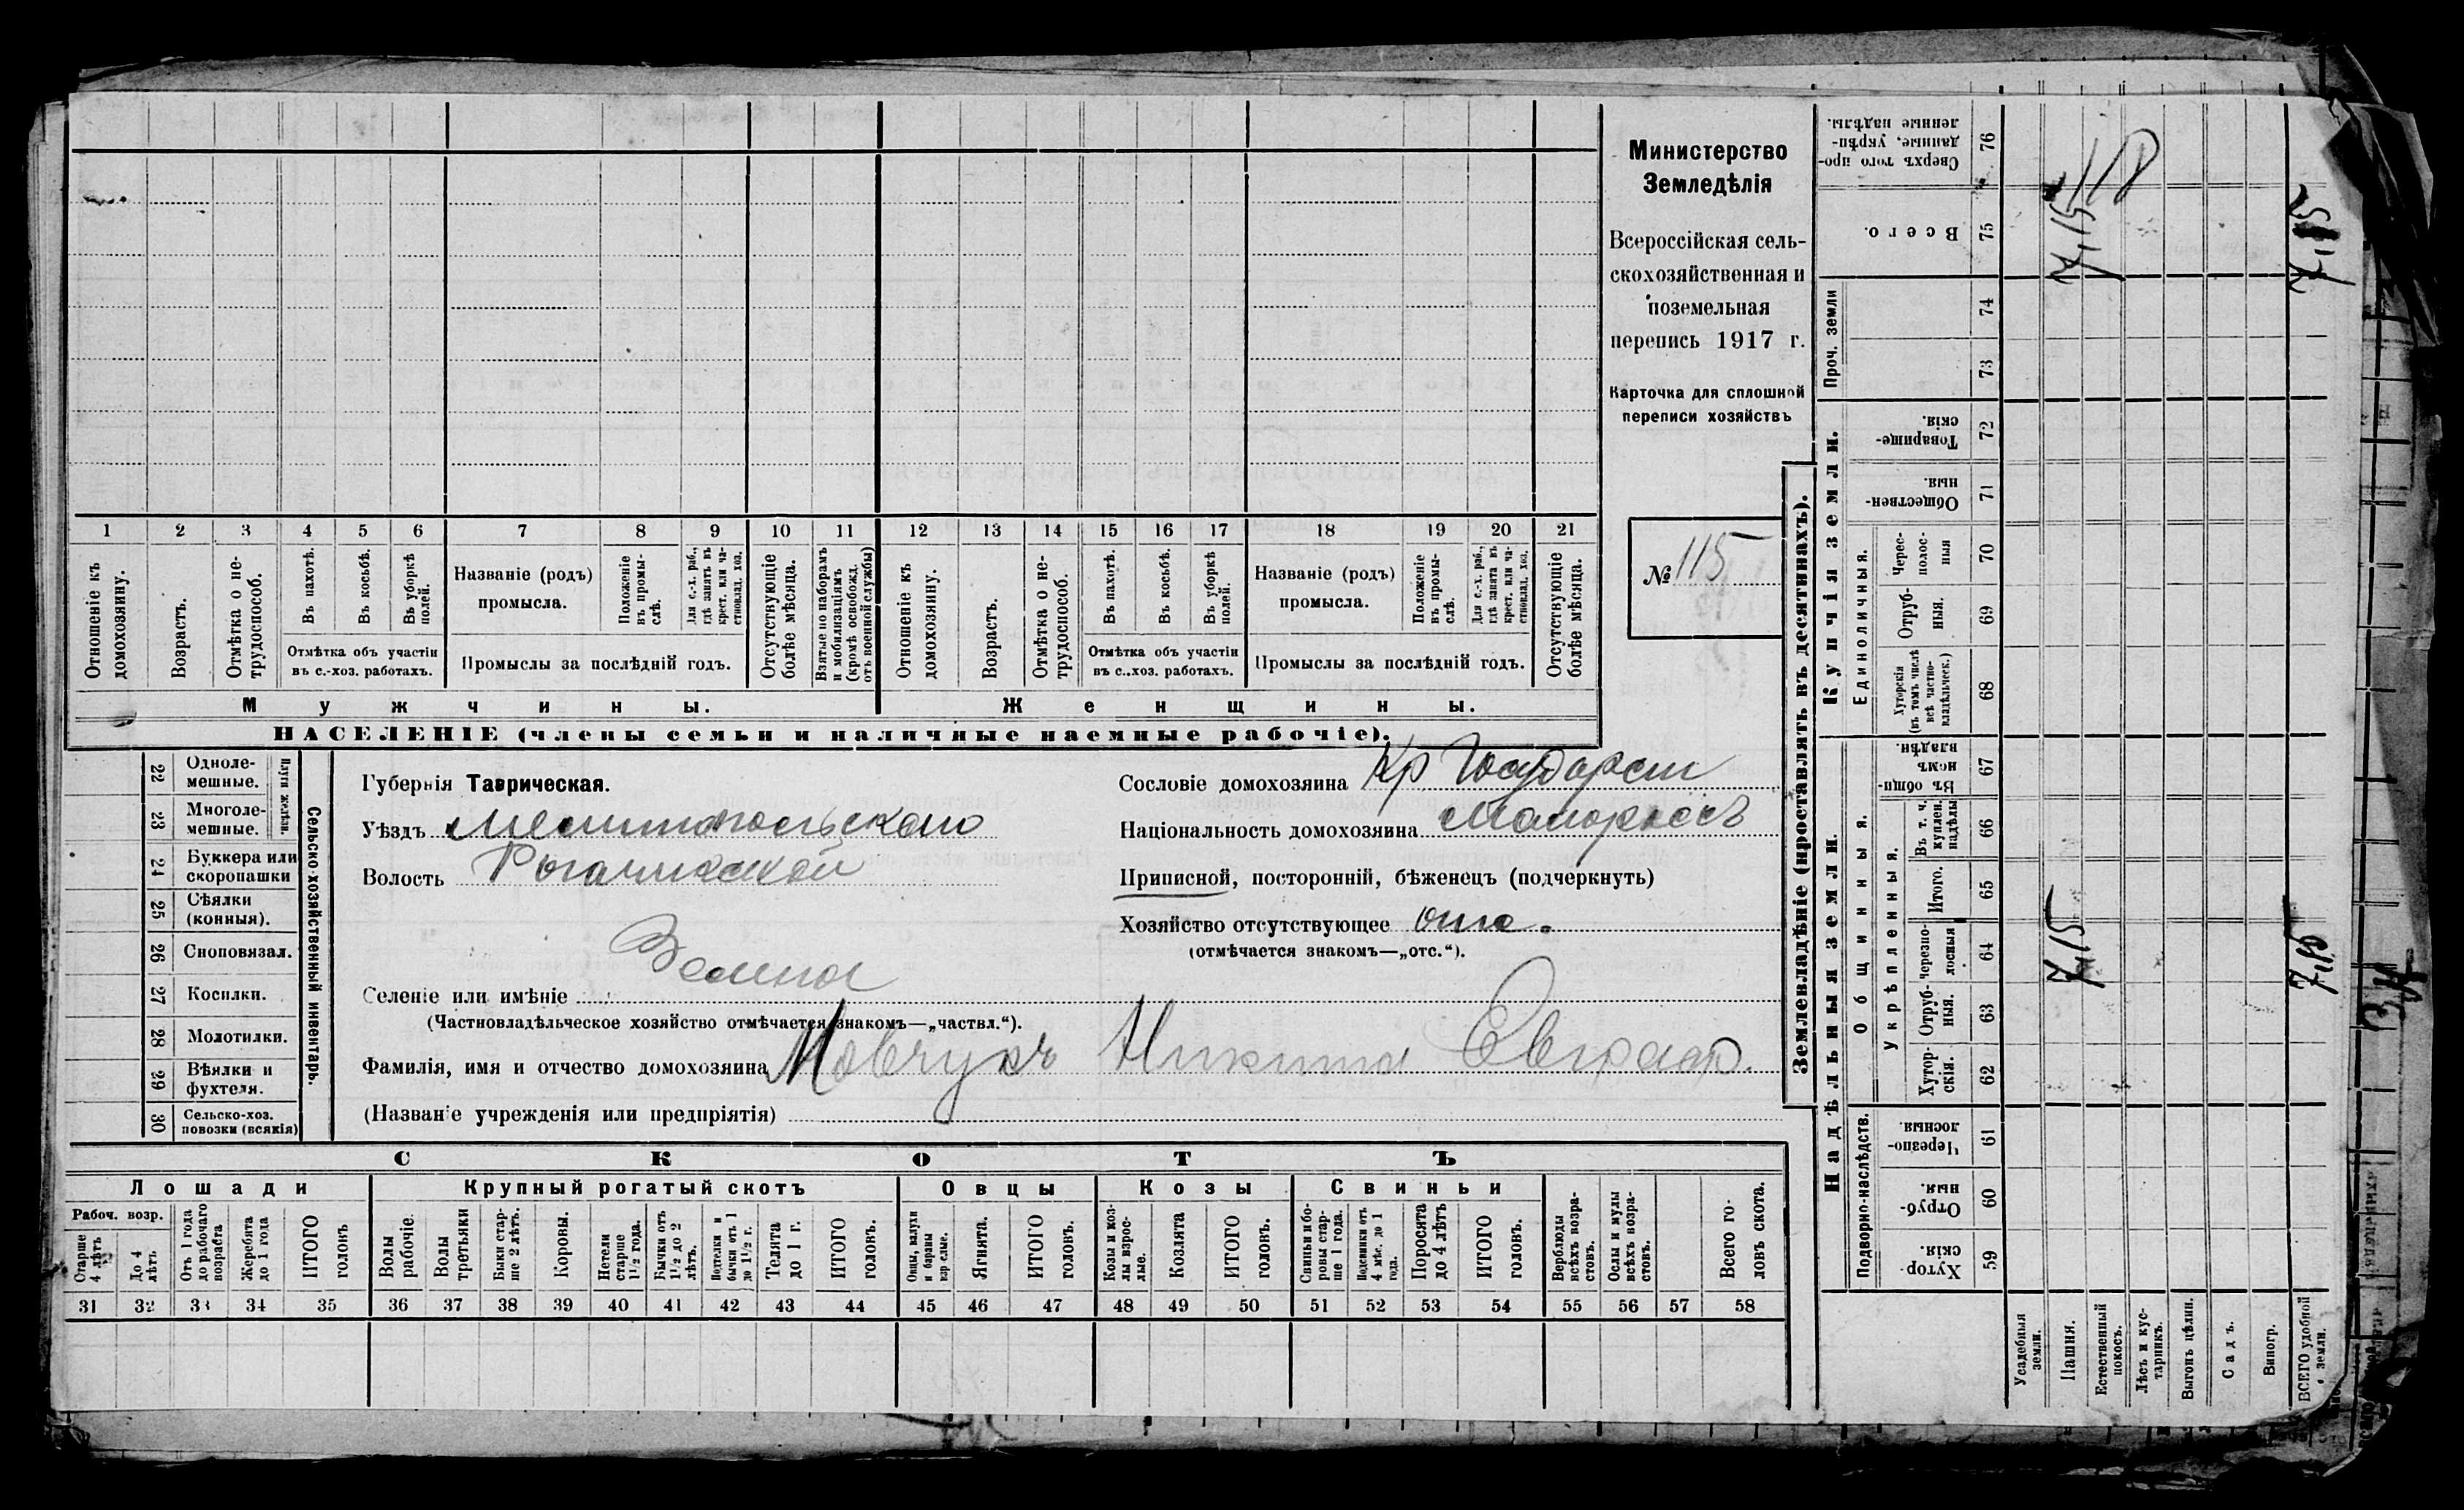 Министерство
Земледѣлія
Всероссійская сель-
скохозяйственная и
поземельная
перепись 1917 г.
Карточка для сплошной
переписи хозяйствъ
№ 115
1 2 3 4 5 6 7 8 9 10 11 12 13 14 15 16 17 18 19 20 21
Отношеніе къ домохозяину.
Возрастъ.
Отмѣтка о не-трудоспособ.
Въ пахотѣ.
Въ косьбѣ.
Въ уборкѣ полей.
Отмѣтка объ участіи
въ с.-хоз. работахъ.
Названіе (родъ)
промысла.
Положеніе въ промы-слѣ.
Для с.-х. раб., гдѣ занятъ въ крест. или ча-стновлад. хоз.
Промыслы за послѣдній годъ.
Отсутствующіе болѣе мѣсяца.
Взятые по наборамъ и мобилизаціямъ (кромѣ освобожд. отъ военной службы)
Отношеніе къ домохозяину.
Возрастъ.
Отмѣтка о не-трудоспособ.
Въ пахотѣ.
Въ косьбѣ.
Въ уборкѣ полей.
Отмѣтка объ участіи
въ с.-хоз. работахъ.
Названіе (родъ)
промысла.
Положеніе въ промы-слѣ.
Для с.-х. раб., гдѣ занята въ крест. или ча-стновлад. хоз.
Промыслы за послѣдній годъ.
Отсутствующіе болѣе мѣсяца.
Мужчины.
Женщины.
НАСЕЛЕНІЕ (члены семьи и наличные наемные рабочіе).
Сельско-хозяйственный инвентарь.
Плуги желѣзн.
22 Одноле-мешные.
23 Многоле-мешные.
24 Буккера или скоропашки
25 Сѣялки (конныя).
26 Сноповязал.
27 Косилки.
28 Молотилки.
29 Вѣялки и фухтеля.
30 Сельско-хоз. повозки (всякія)
Губернія Таврическая.
Уѣздъ Мелитопольскаго
Волость Рогачикской
Селеніе или имѣніе
(Частновладѣльческое хозяйство отмѣчается знакомъ—„частвл.“).
Фамилія, имя и отчество домохозяина Мовчукъ Никита Евграф.
(Названіе учрежденія или предпріятія)
Сословіе домохозяина Кр Государст
Національность домохозяина Малороссъ
Приписной, посторонній, бѣженецъ (подчеркнуть)
Хозяйство отсутствующее отс.
(отмѣчается знакомъ—„отс.“).
СКОТЪ
Лошади
Крупный рогатый скотъ
Овцы
Козы
Свиньи
Рабоч. возр.
Старше 4 лѣтъ
До 4 лѣтъ
Отъ 1 года до рабочаго возраста
Жеребята до 1 года
ИТОГО головъ
Волы рабочіе.
Волы третьяки
Быки стар-ше 2 лѣтъ.
Коровы.
Нетели старше 1½ года.
Бычки отъ 1½ до 2 лѣтъ.
Подтелки и бычки отъ 1 до 1½ г.
Телята до 1 г.
ИТОГО головъ.
Овцы, валухи и бараны взрослые.
Ягнята.
ИТОГО головъ.
Козы и коз-лы взрос-лые.
Козлята
ИТОГО головъ.
Свиньи и бо-ровы стар-ше 1 года.
Подсвинки отъ 4 мѣс. до 1 года.
Поросята до 4 лѣтъ
ИТОГО головъ.
Верблюды всѣхъ возра-стовъ.
Ослы и мулы всѣхъ возра-стовъ.
Всего го-ловъ скота.
31 32 33 34 35 36 37 38 39 40 41 42 43 44 45 46 47 48 49 50 51 52 53 54 55 56 57 58
Землевладѣніе (проставлять въ десятинахъ).
Купчія земли.
Надѣльныя земли.
Сверхъ того про-данные, укрѣп-ленные надѣлы. 76
Всего. 75
Проч. земли 74
73
Товарище-скія. 72
Обществен-ныя. 71
Единоличныя.
Черес-полос-ныя 70
Отруб-ныя. 69
Хуторскія (въ томъ числѣ всѣ частно-владѣльческ.) 68
Общинныя.
Въ общи-номъ владѣн. 67
Укрѣпленныя.
Въ т. ч. куплен. надѣлы 66
Итого. 65
Черезпо-лосныя 64
Отруб-ныя. 63
Хутор-скія. 62
Подворно-наслѣдств.
Черезпо-лосныя. 61
Отруб-ныя. 60
Хутор-скія. 59
Усадебныя земли.
Пашня.
Естественный покосъ.
Лѣсъ и кус-тарникъ.
Выгонъ цѣлин.
Садъ.
Виногр.
ВСЕГО удобной земли.
118
7,15
7,15
7,15
7,15